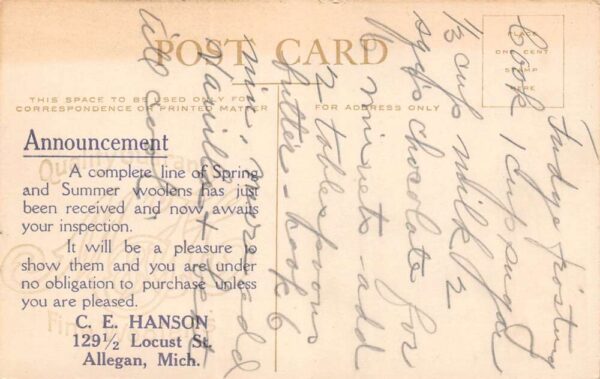 POST CARD
ONE CENT
STAMP
HERE
THIS SPACE TO BE USED ONLY FOR
CORRESPONDENCE OR PRINTED MATTER
FOR ADDRESS ONLY
Announcement
A complete line of Spring
and Summer woolens has just
been received and now awaits
your inspection.
It will be a pleasure to
show them and you are under
no obligation to purchase unless
you are pleased.
C. E. HANSON
129½ Locust St.
Allegan, Mich.
Fudge frosting
Cook 1 cup sugar
1/3 cup milk 2
sqr's chocolate for
6 minuets - add
2 tablespoons
butter - cook 6
min. more - add
Vanilla + beat
till cool